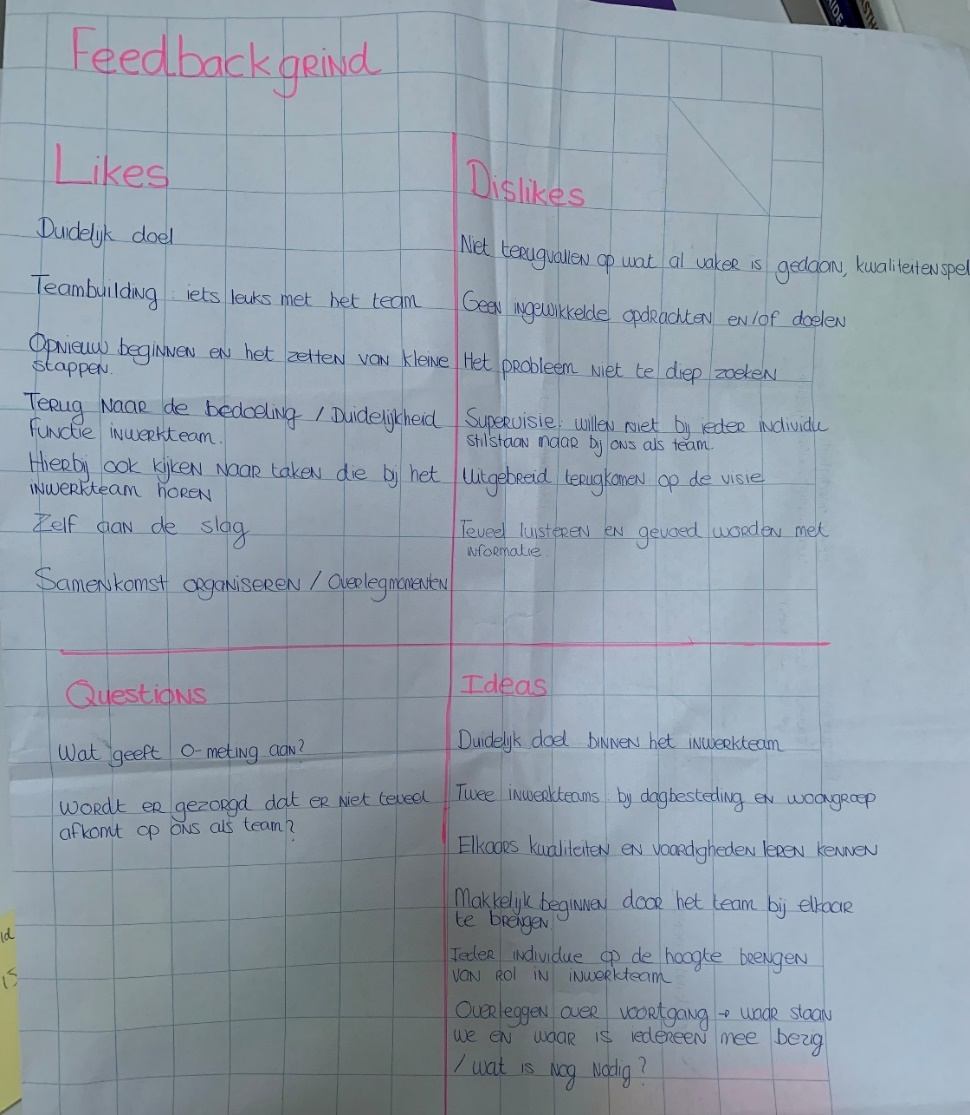 Feedback grind
Likes
Duidelijk doel
Teambuilding : iets leuks met het team
Opnieuw beginnen en het zetten van kleine
stappen.
Terug naar de bedoeling / Duidelijkheid
functie inwerkteam.
Hierbij ook kijken naar taken die bij het
inwerkteam horen
Zelf aan de slag
Samenkomst organiseren / Overlegmomenten
Dislikes
Niet terugvallen op wat al vaker is gedaan, kwaliteitenspel
Geen ingewikkelde opdrachten en/of doelen
Het probleem niet te diep zoeken
Supervisie: willen niet bij ieder individu
stilstaan maar bij ons als team.
Uitgebreid terugkomen op de visie
Teveel luisteren en gevoed worden met
informatie
Questions
Wat geeft 0-meting aan?
Wordt er gezorgd dat er niet teveel
afkomt op ons als team?
Ideas
Duidelijk doel binnen het inwerkteam
Twee inwerkteams bij dagbesteding en woongroep
Elkaars kwaliteiten en vaardigheden leren kennen
Makkelijk beginnen door het team bij elkaar
te brengen
Ieder individue op de hoogte brengen
van rol in inwerkteam
Overleggen over voortgang → waar staan
we en waar is iedereen mee bezig
/ wat is nog nodig?